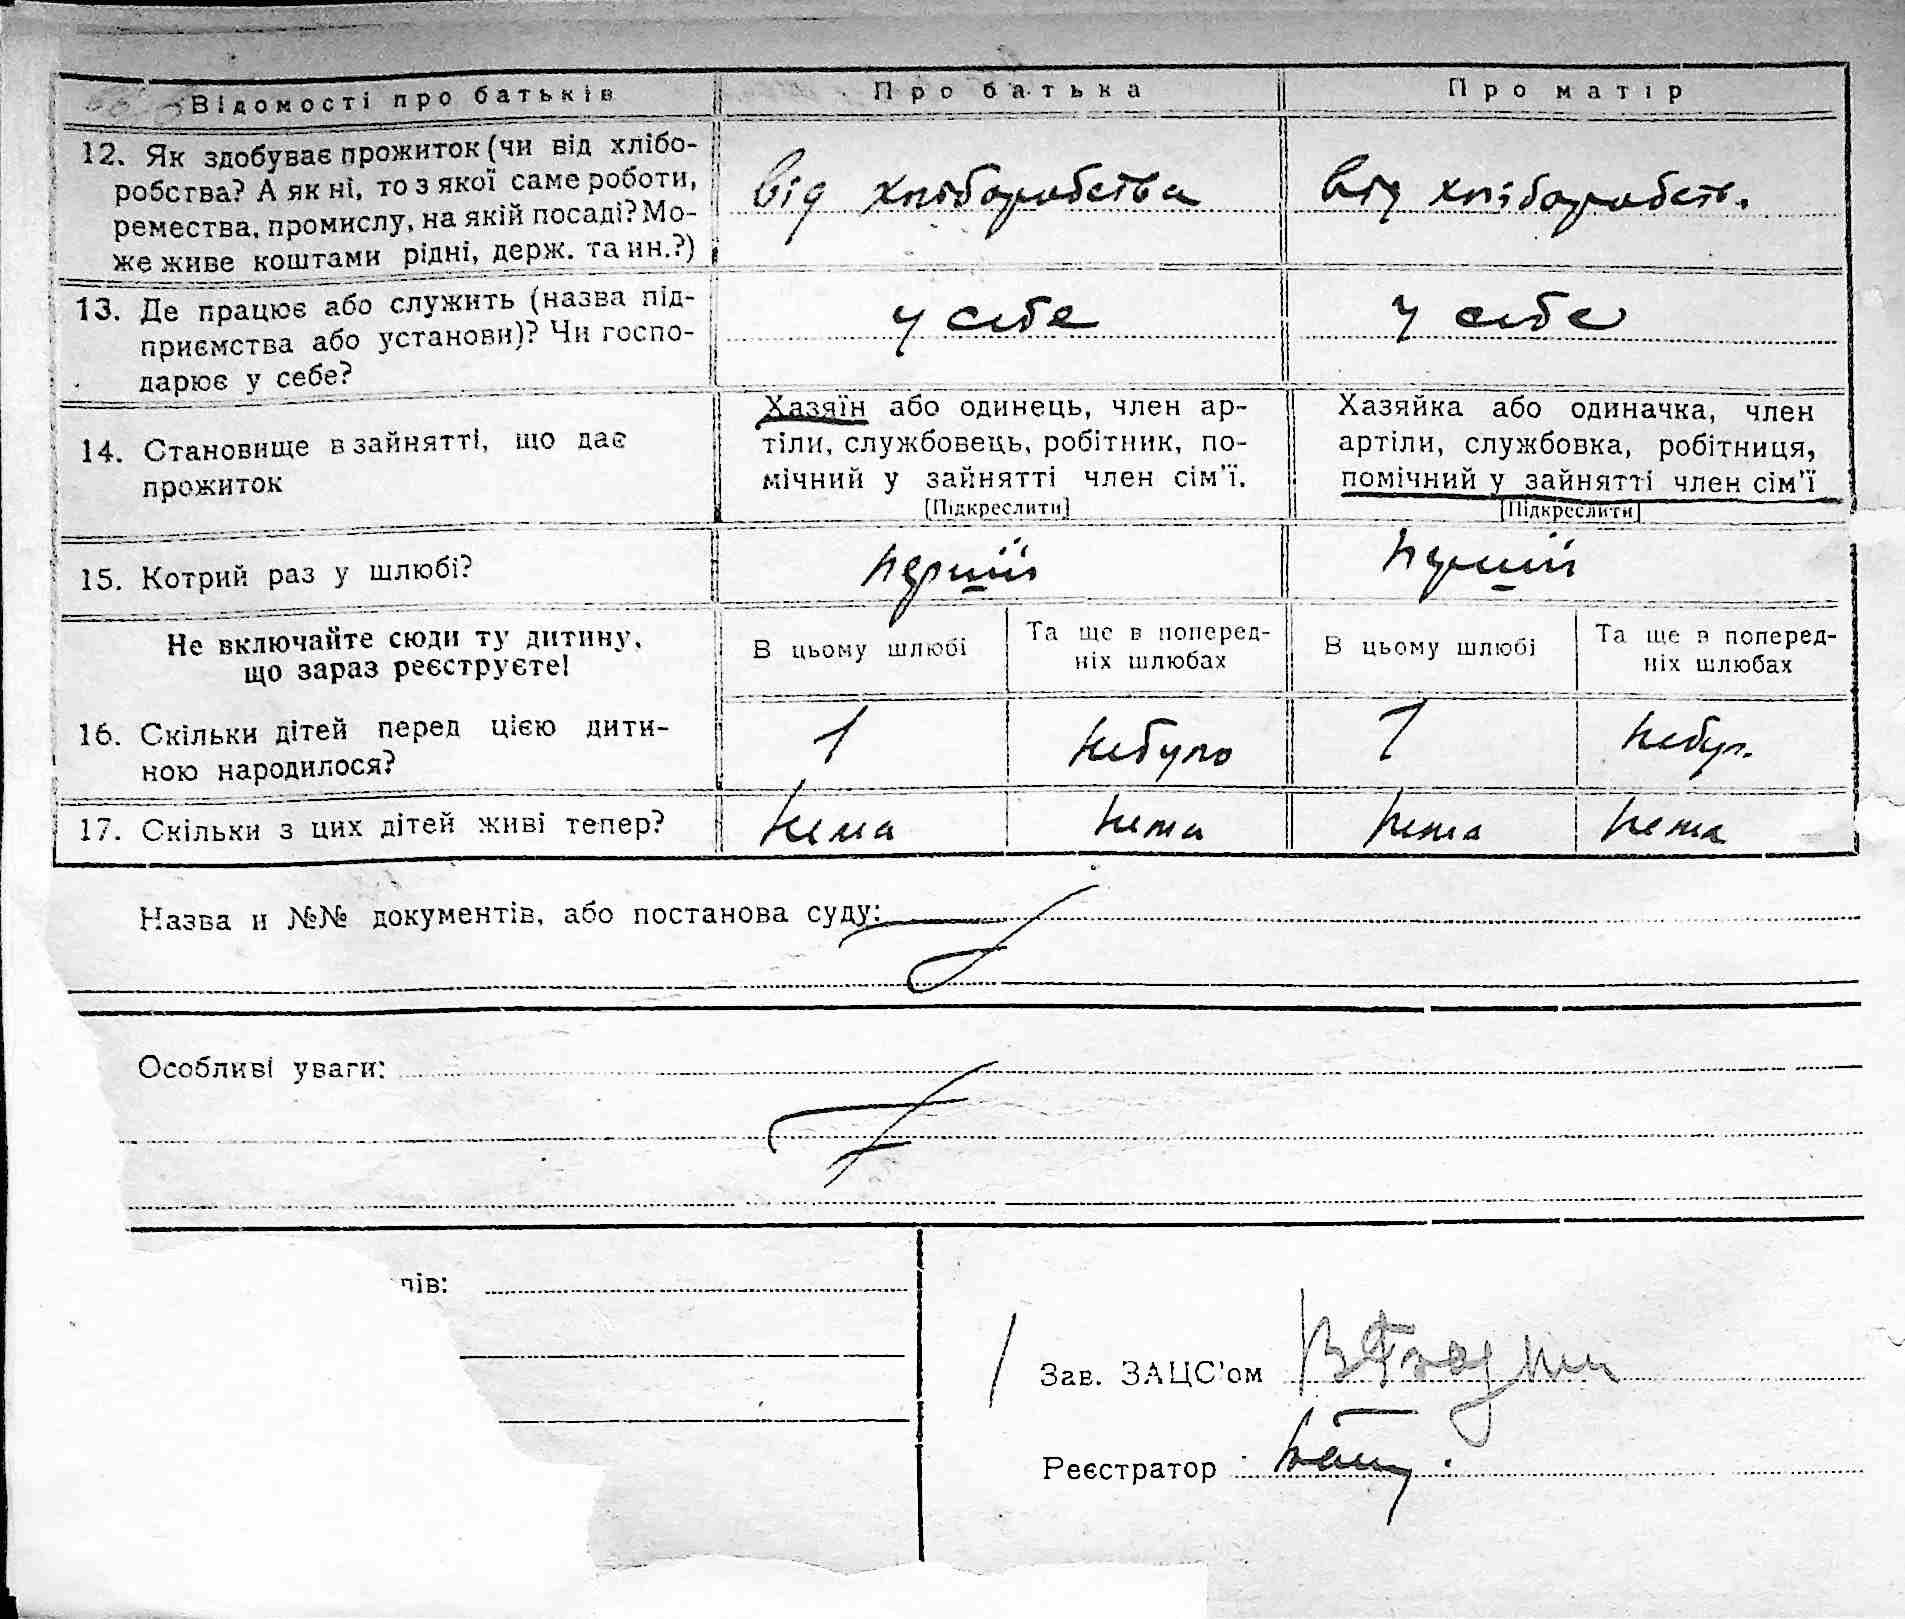 Відомості про батьків Про батька Про матір
12. Як здобуває прожиток (чи від хлібо-
робства? А як ні, то з якої саме роботи,
ремества, промислу, на якій посаді? Мо-
же живе коштами рідні, держ. та ин.?)
від хліборобства
від хліборобств.
13. Де працює або служить (назва під-
приємства або установи)? Чи госпо-
дарює у себе?
у себе
у себе
14. Становище в зайнятті, що дає
прожиток
Хазяїн або одинець, член ар-
тіли, службовець, робітник, по-
мічний у зайнятті член сім'ї.
[Підкреслити]
Хазяйка або одиначка, член
артіли, службовка, робітниця,
помічний у зайнятті член сім'ї
[Підкреслити]
15. Котрий раз у шлюбі?
перший
перший
Не включайте сюди ту дитину,
що зараз реєструєте!
В цьому шлюбі
Та ще в поперед-
ніх шлюбах
В цьому шлюбі
Та ще в поперед-
ніх шлюбах
16. Скільки дітей перед цією дити-
ною народилося?
1
небуло
1
небул.
17. Скільки з цих дітей живі тепер?
нема
нема
нема
нема
Назва и №№ документів, або постанова суду:
Особливі уваги:
пів:
Зав. ЗАЦС'ом
Реєстратор